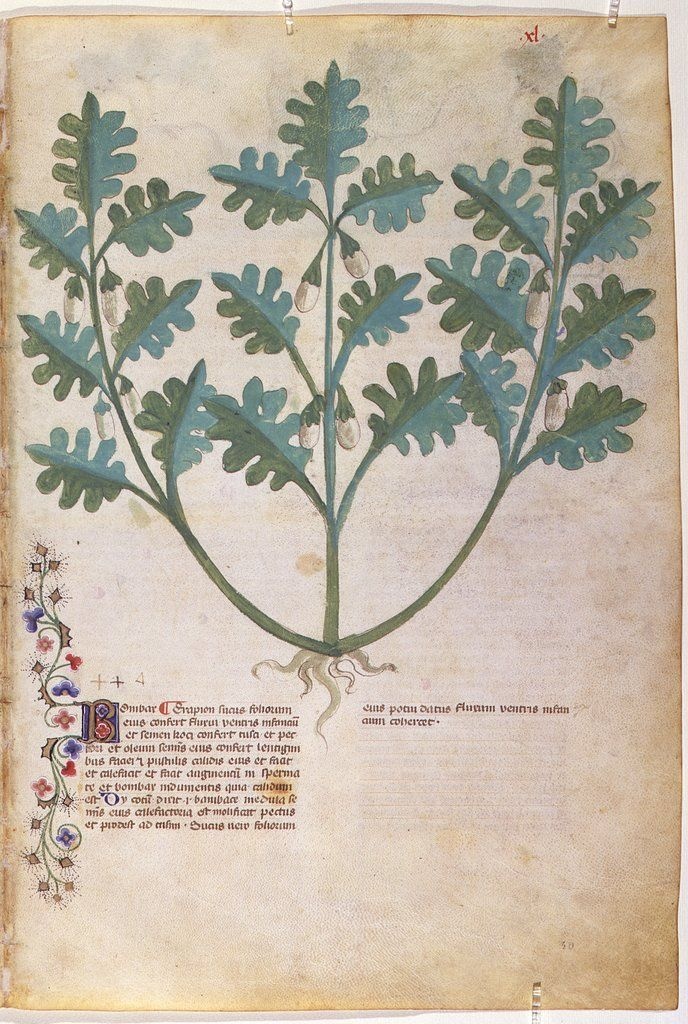 xl.
Bombax Serapion sucus foliorum
eius confert fluxui ventris infanciū
et semen hoc confert tussi et pec
tori et oleum seminis eius confert lentigini
bus faciei ⁊ pustulis calidis eius et facit
et calefacit et facit augmentū in sperma
te et bombax indumentis quia calidum
est Dy dixit bambace medula se
minis eius calefactoria est mollificat pectus
et prodest ad tussim · Sucus vero foliorum
eius potui datus fluxum ventris infan
cium cohercet ·
40